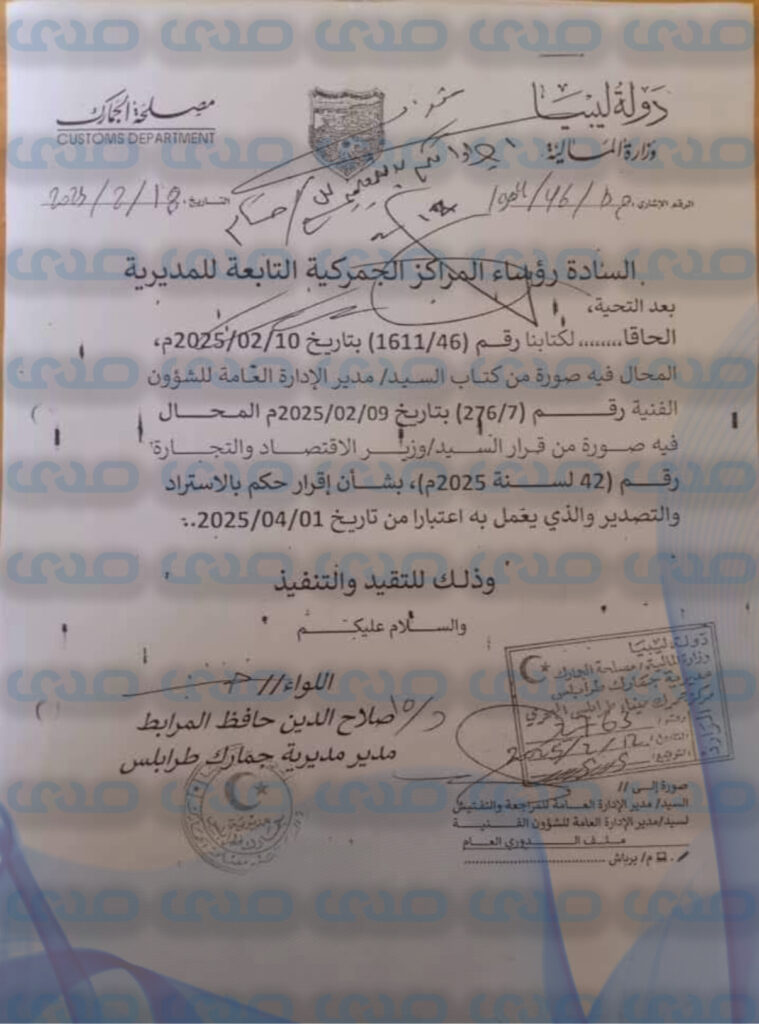 دولة ليبيا
وزارة المالية
مصلحة الجمارك
CUSTOMS DEPARTMENT
الرقم الإشاري:
التاريخ: 2025/2/18
السادة رؤساء المراكز الجمركية التابعة للمديرية
بعد التحية،
الحاقا........لكتابنا رقم (1611/46) بتاريخ 2025/02/10م،
المحال فيه صورة من كتاب السيد/ مدير الإدارة العامة للشؤون
الفنية رقم (276/7) بتاريخ 2025/02/09م المحال
فيه صورة من قرار السيد/وزير الاقتصاد والتجارة
رقم (42 لسنة 2025م)، بشأن إقرار حكم بالاستراد
والتصدير والذي يعمل به اعتبارا من تاريخ 2025/04/01.:
وذلك للتقيد والتنفيذ
والسلام عليكم
اللواء//
صلاح الدين حافظ المرابط
مدير مديرية جمارك طرابلس
دولة ليبيا
وزارة المالية/مصلحة الجمارك
مديرية جمارك طرابلس
جمرك ميناء طرابلس البحري
2763
صورة إلى //
السيد/ مدير الإدارة العامة للمراجعة والتفتيش
لسيد/مدير الإدارة العامة للشؤون الفنية
ملف الدوري العام
م/ برباش
صدى